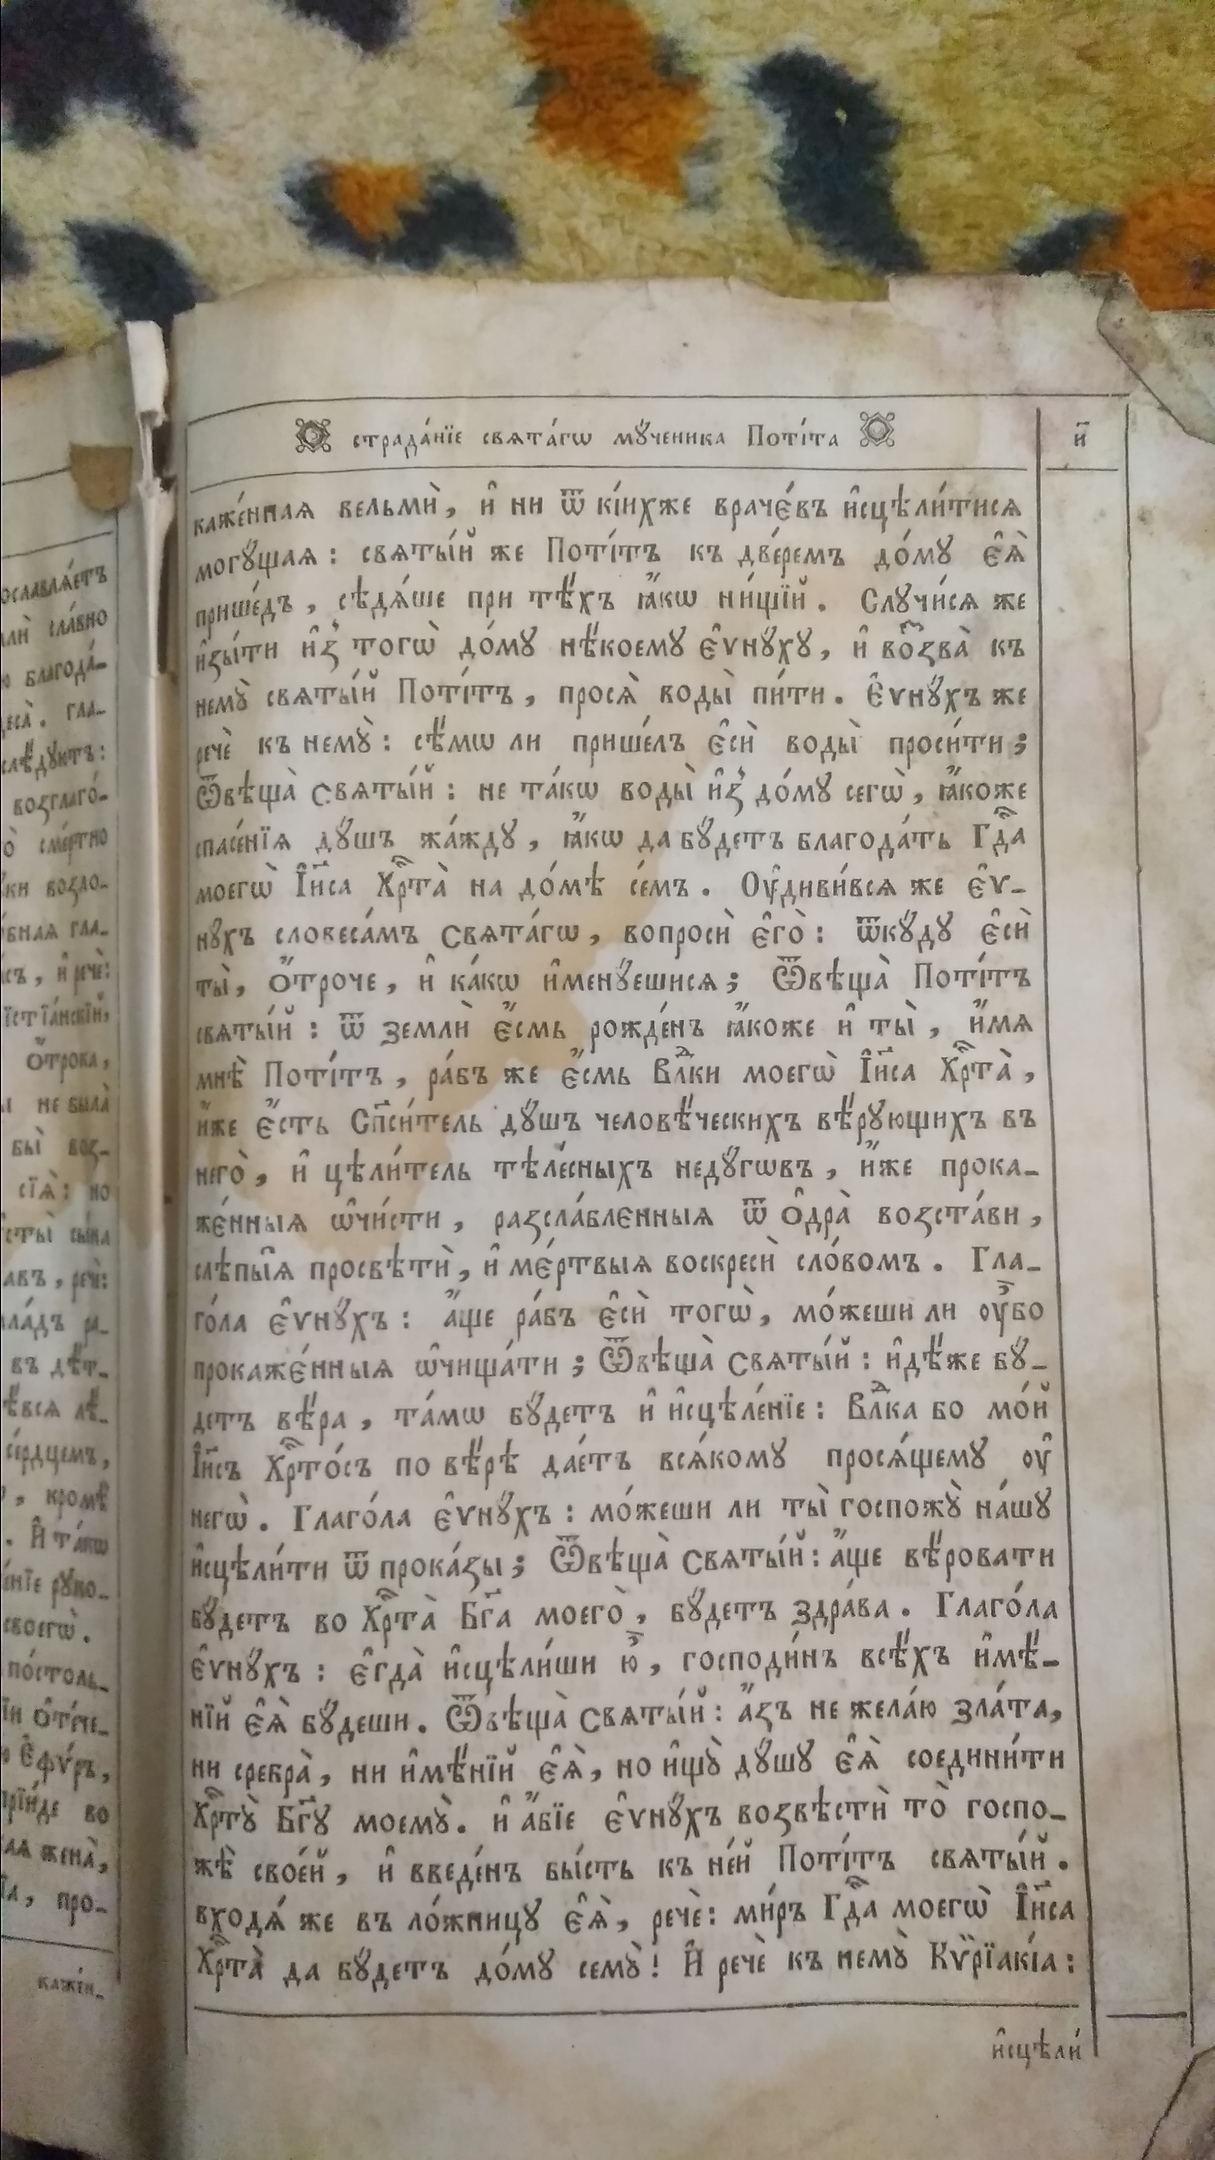 страда́нїе свѧта́гѡ мꙋ́ченика Поті́та
и҃
каже́ннаѧ вельмѝ, и҆ ни ѿ кі́ихже враче́въ и҆сцѣли́тисѧ
могꙋ́щаѧ: свѧты́й же Поті́тъ къ две́ремъ до́мꙋ є҆ѧ̀
прише́дъ, сѣдѧ́ше при тѣ́хъ ꙗ҆́кѡ ни́щїй. Слꙋчи́сѧ же
и҆зы́ти и҆з̾ тогѡ̀ до́мꙋ нѣ́коемꙋ є҆ѵнꙋ́хꙋ, и҆ воззва̀ къ
немꙋ̀ свѧты́й Поті́тъ, просѧ̀ воды̀ пи́ти. Є҆ѵнꙋ́хъ же
речѐ къ немꙋ̀: сѣ́мѡ ли прише́лъ є҆сѝ воды̀ проси́ти;
Ѿвѣща̀ свѧты́й: не та́кѡ воды̀ и҆з̾ до́мꙋ сегѡ̀, ꙗ҆́коже
спасе́нїѧ дꙋ́шъ жа́ждꙋ, ꙗ҆́кѡ да бꙋ́детъ благода́ть Гдⷭ҇а
моегѡ̀ І҆и҃са Хрⷭ҇та̀ на до́мѣ се́мъ. Оу҆диви́всѧ же є҆ѵ-
нꙋ́хъ словеса́мъ свѧта́гѡ, вопросѝ є҆го̀: ѿкꙋ́дꙋ є҆сѝ
ты̀, ѻ҆́троче, и҆ ка́кѡ и҆менꙋ́ешисѧ; Ѿвѣща̀ Поті́тъ
свѧты́й: ѿ землѝ є҆́смь рожде́нъ ꙗ҆́коже и҆ ты̀, и҆́мѧ
мнѣ̀ Поті́тъ, ра́бъ же є҆́смь Влⷣки моегѡ̀ І҆и҃са Хрⷭ҇та̀,
и҆́же є҆́сть Сп҃си́тель дꙋ́шъ человѣ́ческихъ вѣ́рꙋющихъ въ
него̀, и҆ цѣли́тель тѣле́сныхъ недꙋ́гѡвъ, и҆́же прока-
же́нныѧ ѡ҆чи́сти, разсла́бленныѧ ѿ ѻ҆дра̀ возста́ви,
слѣпы̑ѧ просвѣтѝ, и҆ ме́ртвыѧ воскресѝ сло́вомъ. Гла-
го́ла є҆ѵнꙋ́хъ: а҆́ще ра́бъ є҆сѝ тогѡ̀, мо́жеши ли оу҆̀бо
прокаже́нныѧ ѡ҆чища́ти; Ѿвѣща̀ свѧты́й: и҆дѣ́же бꙋ́-
детъ вѣ́ра, та́мѡ бꙋ́детъ и҆ и҆сцѣле́нїе: Влⷣка бо мо́й
І҆и҃съ Хрⷭ҇то́съ по вѣ́рѣ дае́тъ всѧ́комꙋ просѧ́щемꙋ оу҆
негѡ̀. Глаго́ла є҆ѵнꙋ́хъ: мо́жеши ли ты̀ госпожꙋ̀ на́шꙋ
и҆сцѣли́ти ѿ прока́зы; Ѿвѣща̀ свѧты́й: а҆́ще вѣ́ровати
бꙋ́детъ во Хрⷭ҇та̀ Бг҃а моего̀, бꙋ́детъ здра́ва. Глаго́ла
є҆ѵнꙋ́хъ: є҆гда̀ и҆сцѣли́ши ю҆̀, господи́нъ всѣ́хъ и҆мѣ́-
нїй є҆ѧ̀ бꙋ́деши. Ѿвѣща̀ свѧты́й: а҆́зъ не жела́ю зла́та,
ни сребра̀, ни и҆мѣ́нїй є҆ѧ̀, но и҆щꙋ̀ дꙋ́шꙋ є҆ѧ̀ соедини́ти
Хрⷭ҇тꙋ̀ Бг҃ꙋ моемꙋ̀. и҆ а҆́бїе є҆ѵнꙋ́хъ возвѣстѝ то̀ госпо-
жѣ̀ свое́й, и҆ введе́нъ бы́сть къ не́й Поті́тъ свѧты́й.
входѧ́ же въ ло́жницꙋ є҆ѧ̀, речѐ: ми́ръ Гдⷭ҇а моегѡ̀ І҆и҃са
Хрⷭ҇та̀ да бꙋ́детъ до́мꙋ семꙋ̀! И҆ речѐ къ немꙋ̀ Кѷрїакі́а:
и҆сцѣли́